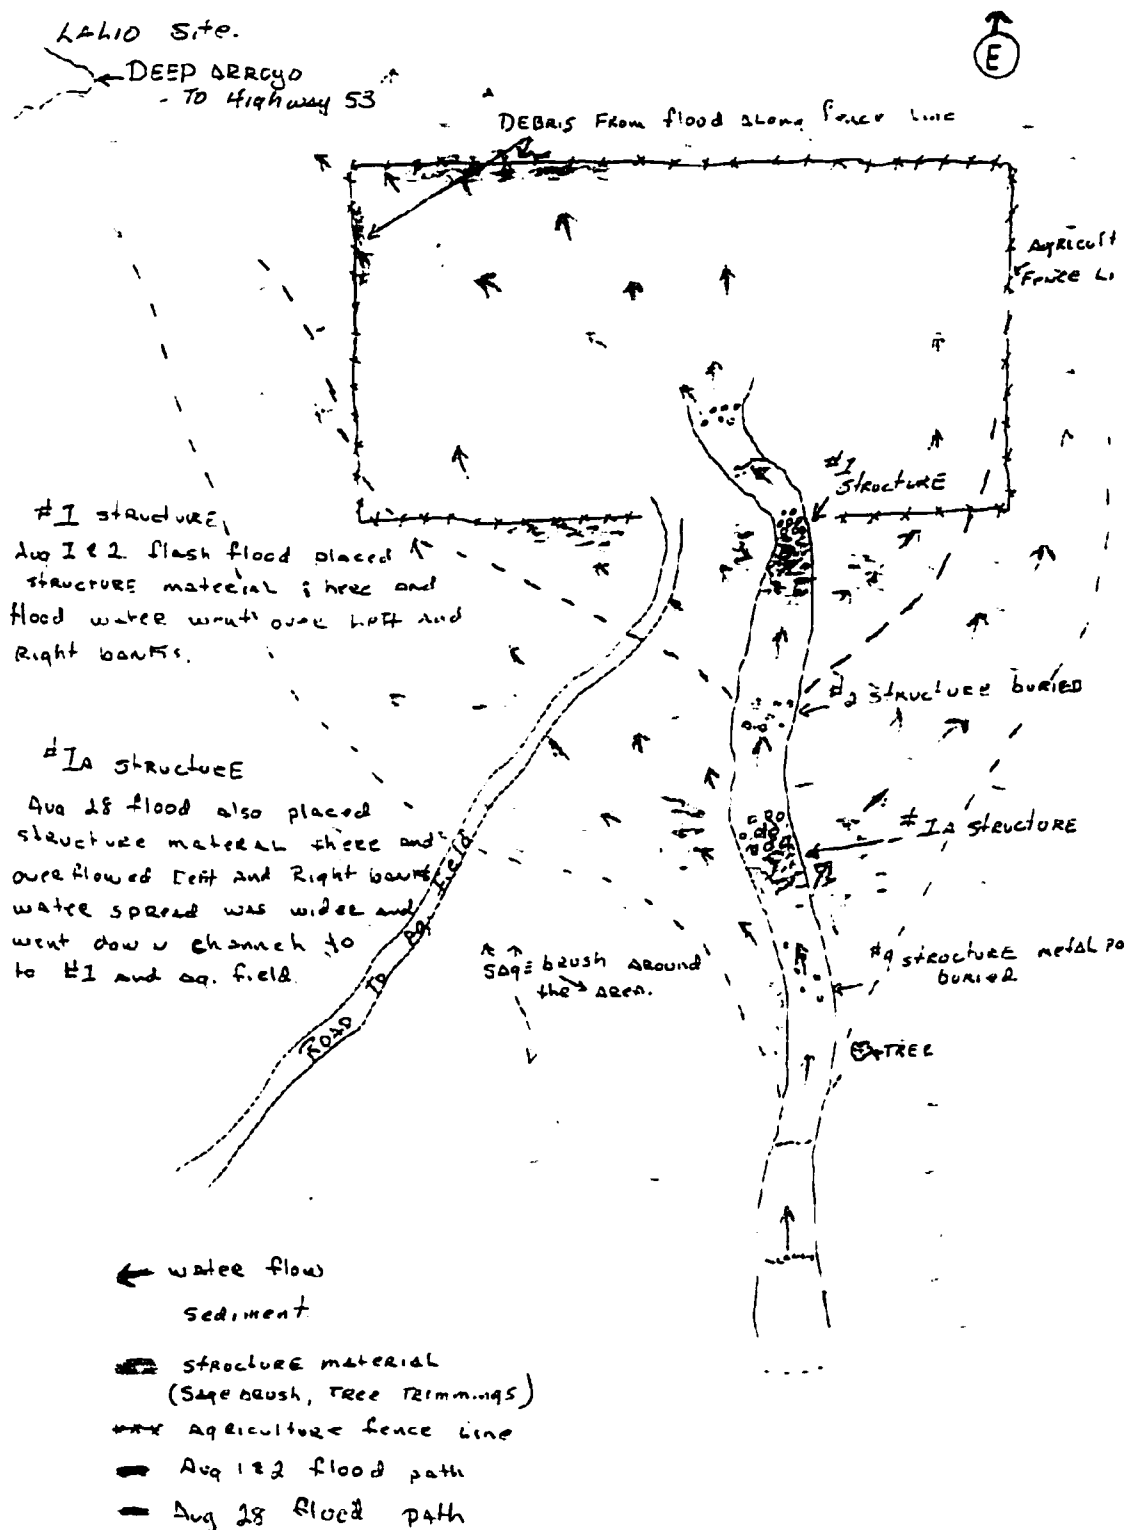 LALIO Site.
DEEP ARROYO
- TO Highway 53
E
DEBRIS From flood along fence line
Agricult
Fence Li
#1
STRUCTURE
#1 structure,
Aug 1 & 2 flash flood placed
structure material ; here and
flood water went over Left and
Right banks.
#2 STRUCTURE BURIED
#1A structure
Aug 28 flood also placed
structure materal there and
over flowed Left and Right banks
water spread was wider and
went down channel to
to #1 and ag. field.
#1A STRUCTURE
#9 STRUCTURE metal Po
buried
SAGE brush around
the AREA.
TREE
ROAD TO Ag. Field
water flow
Sediment
structure material
(Sage brush, Tree Trimmings)
Agriculture fence Line
Aug 1 & 2 flood path
Aug 28 flood path